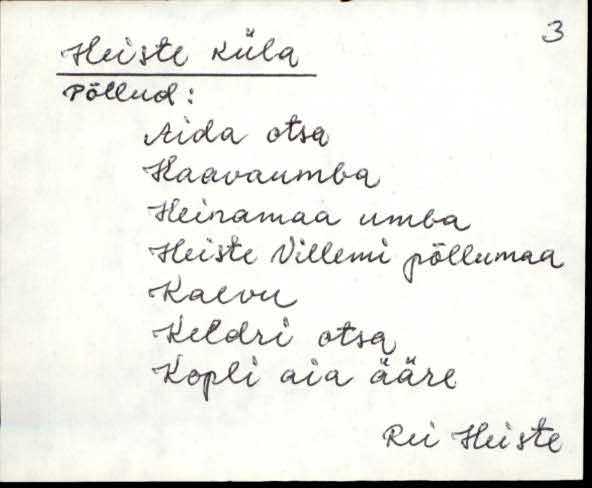 3
Heiste küla
Põllud:
Aida otsa
Haavaumba
Heinamaa umba
Heiste Villemi põllumaa
Kaevu
Keldri otsa
Kopli aia ääre
Rei Heiste